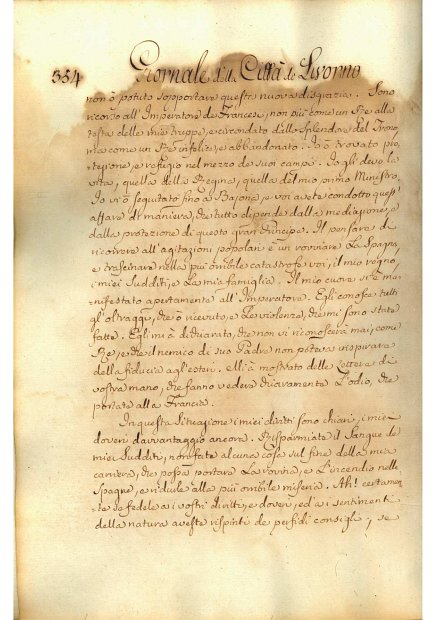 334 Giornale della Città di Livorno
non ò potuto sopportare questa nuova disgrazia. Sono
ricorso all'Imperatore de Francesi, non più come un Rè alla
testa delle mie truppe, e circondato dallo splendore del Trono,
ma come un Rè infelice, e abbandonato. Io ò trovato pro-
tezione, e refugio nel mezzo de suoi campi. Io gli devo la
vita, quella della Regina, quella del mio primo Ministro.
Io vi ò seguitato fino a Bajona, e voi avete condotto quest'
affare di maniera, che tutto dipende dalla mediazione, e
dalla protezione di questo gran Principe. Il pensare di
ricorrere all'agitazioni popolari è un rovinare La Spagna,
e trascinare nella più orribile catastrofe voi, il mio regno,
i miei sudditi, e La mia famiglia. Il mio cuore si è ma-
nifestato apertamente all'Imperatore. Egli conosce tutti
gl'oltraggi, che ò ricevuti, e Le violenze, che mi sono state
fatte. Egli mi à dichiarato, che non vi riconoscerà mai, come
Rè, e che il nemico di suo Padre non poteva inspirare
della fiducia agl'esteri. Elli à mostrato delle Lettere di
vostra mano, che fanno vedere chiaramente L'odio, che
portate alla Francia.
In questa situazione i miei diritti sono chiari, i miei
doveri davvantaggio ancora. Risparmiate il Sangue de
miei Sudditi, non fate alcuna cosa sul fine della mia
carriera, che possa portare La rovina, e L'incendio nelle
Spagne, e ridurle alla più orribile miseria. Ah! certamen-
te se fedele a i vostri diritti, e doveri, ed a i sentimenti
della natura aveste rispinti de perfidi consigli, se